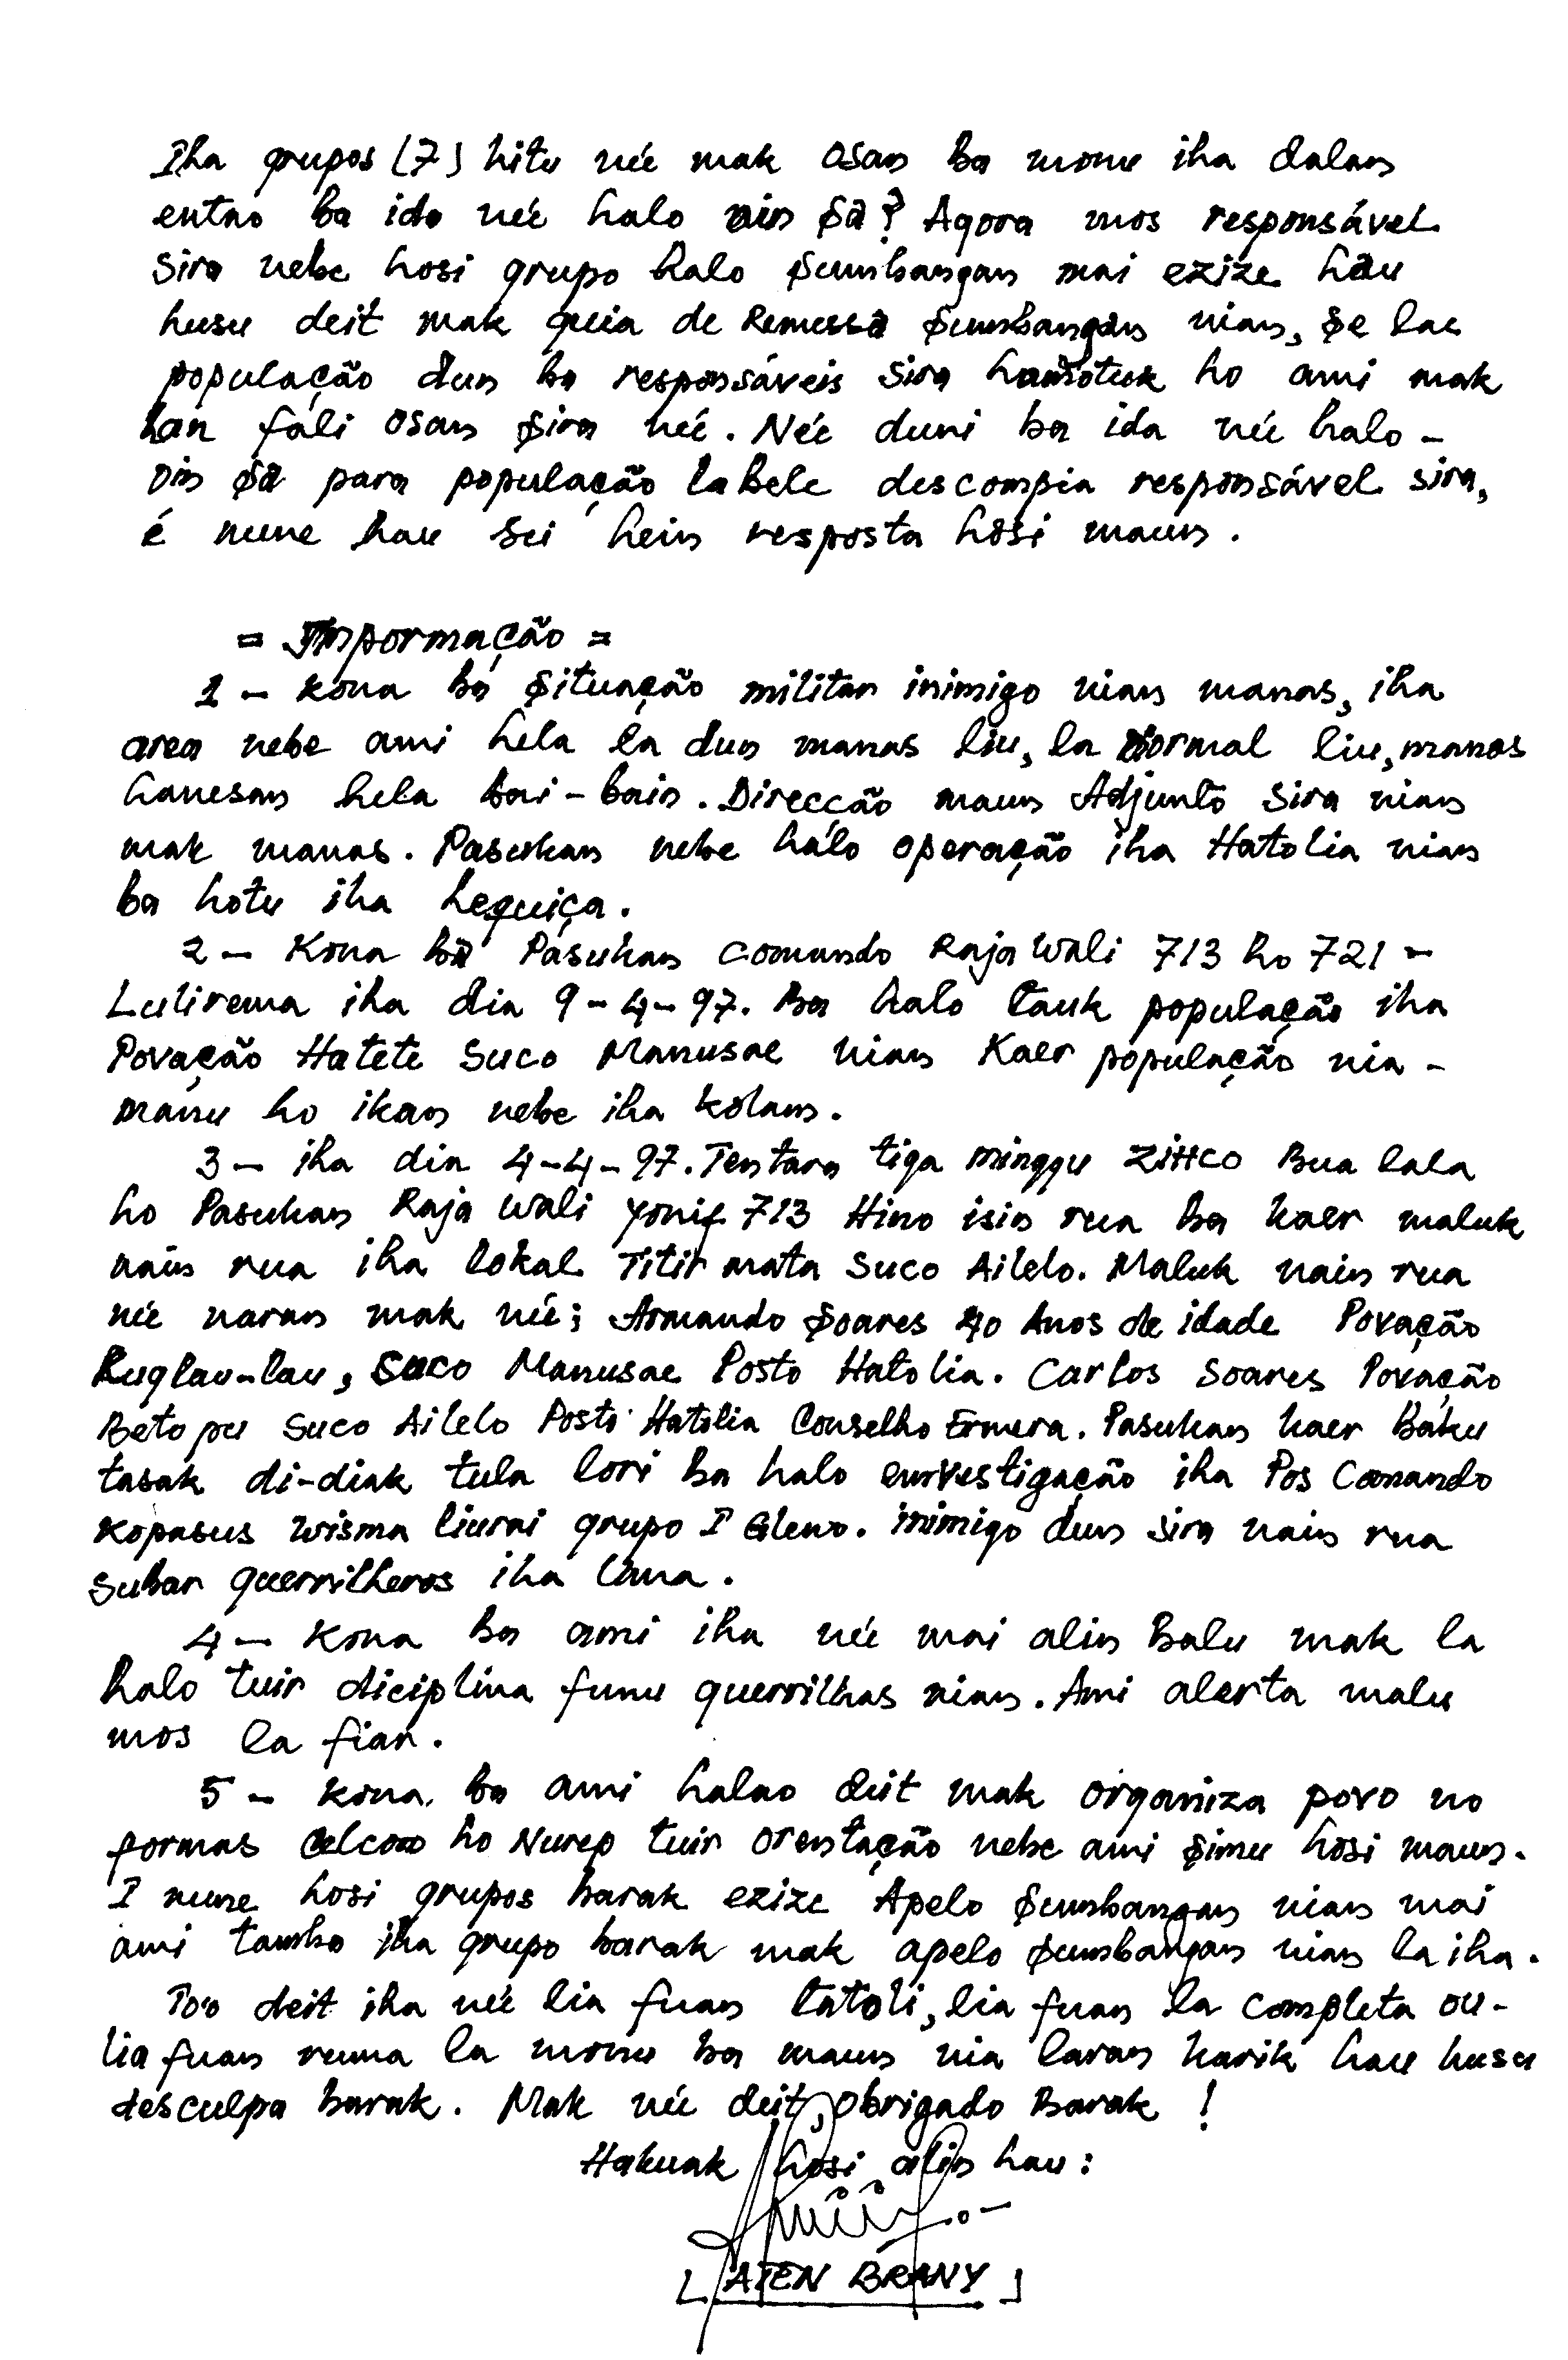 Iha grupos (7) hitu neé mak osan ba monu iha dalan
entao ba ida neé halo nin sa? Agora mos responsável
sira nebe hosi grupo halo sumbangan mai ezize háu
husu deit mak guia de Remessa sumbangan nian, se lae
população dun ba responsáveis sira hamotuk ho ami mak
han fali osan sira neé. Neé duni ba ida neé halo -
oin sa para população labele descompia responsável sira,
é nune hau sei hein resposta hosi maun.
= Inpormação =
1 - Kona ba situação militar inimigo nian manas, iha
area nebe ami hela la dun manas liu, la normal liu, manas
hanesan hela bai-bain. Direcção maun Adjunto sira nian
mak manas. Pasukan nebe halo operação iha Hatolia nian
ba hotu iha Lequiça.
2 - Kona ba Pasukan comando Raja Wali 713 ho 721 -
Lulirema iha dia 9-4-97. Ba halo tauk população iha
Povação Hatete Suco Manusae nian Kaer população nia -
manu ho ikan nebe iha kolam.
3 - iha dia 4-4-97. Tentara tiga minggu Zittco Bua lala
ho Pasukan Raja Wali yonif 713 Hino isin rua ba kaer maluk
nain rua iha lokal Titir mata Suco Ailelo. Maluk nain rua
neé naran mak neé; Armando Soares 40 Anos de idade Povação
Ruglau-lau, Suco Manusae Posto Hatolia. Carlos Soares Povação
Betopu Suco Ailelo Posto Hatolia Conselho Ermera. Pasukan kaer Baku
tasak di-diak tula lori ba halo envestigação iha Pos Comando
Kopasus Wisma liurai grupo I Gleno. inimigo dun sira nain rua
subar guerrilheros iha Uma.
4 - Kona ba ami iha neé mai alin balu mak la
halo tuir diciplina funu guerrilhas nian. Ami alerta malu
mos la fiar.
5 - Kona ba ami halao deit mak organiza povo no
formas Celcom ho Nurep tuir orentação nebe ami simu hosi maun.
I nune hosi grupos barak ezize Apelo sumbangan nian mai
ami tamba iha grupo barak mak apelo sumbangan nian la iha.
Too deit iha neé lia fuan tatoli, lia fuan la completa ou -
lia fuan ruma la monu ba maun nia laran karik hau husu
desculpa barak. Mak neé deit, obrigado Barak !
Hakuak hosi alin hau:
[ATEN BRANY]